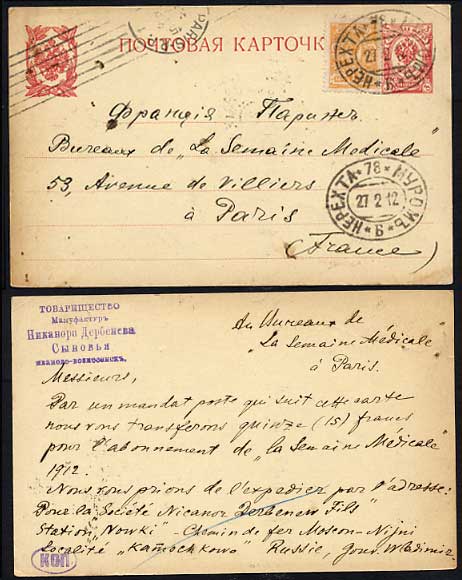 ПОЧТОВАЯ КАРТОЧК
НЕРЕХТА * 78 *
27 2
НЕРЕХТА * 78 * МУРОМЪ * Б *
27 2 12
Франція Парижъ
Bureaux de „La Semaine Medicale"
53, Avenue de Villiers
à Paris
(France)
ТОВАРИЩЕСТВО
Мануфактуръ
Никанора Дербенева
Сыновья
ИВАНОВО-ВОЗНЕСЕНСКЪ.
Au Bureaux de
„La Semaine Médicale"
à Paris.
Messieurs,
Par un mandat poste qui suit cette carte
nous vous transferons quinze (15) francs
pour l'abonnement de „la Semaine Médicale"
1912.
Nous vous prions de l'expedier par l'adresse:
Pour la Société Nicanor Derbenew Fils
Station „Nowki" - Chemin de fer Moscou-Nijni
Localité „Kameschkowo" Russie, gouv. Wladimir.
КОП.